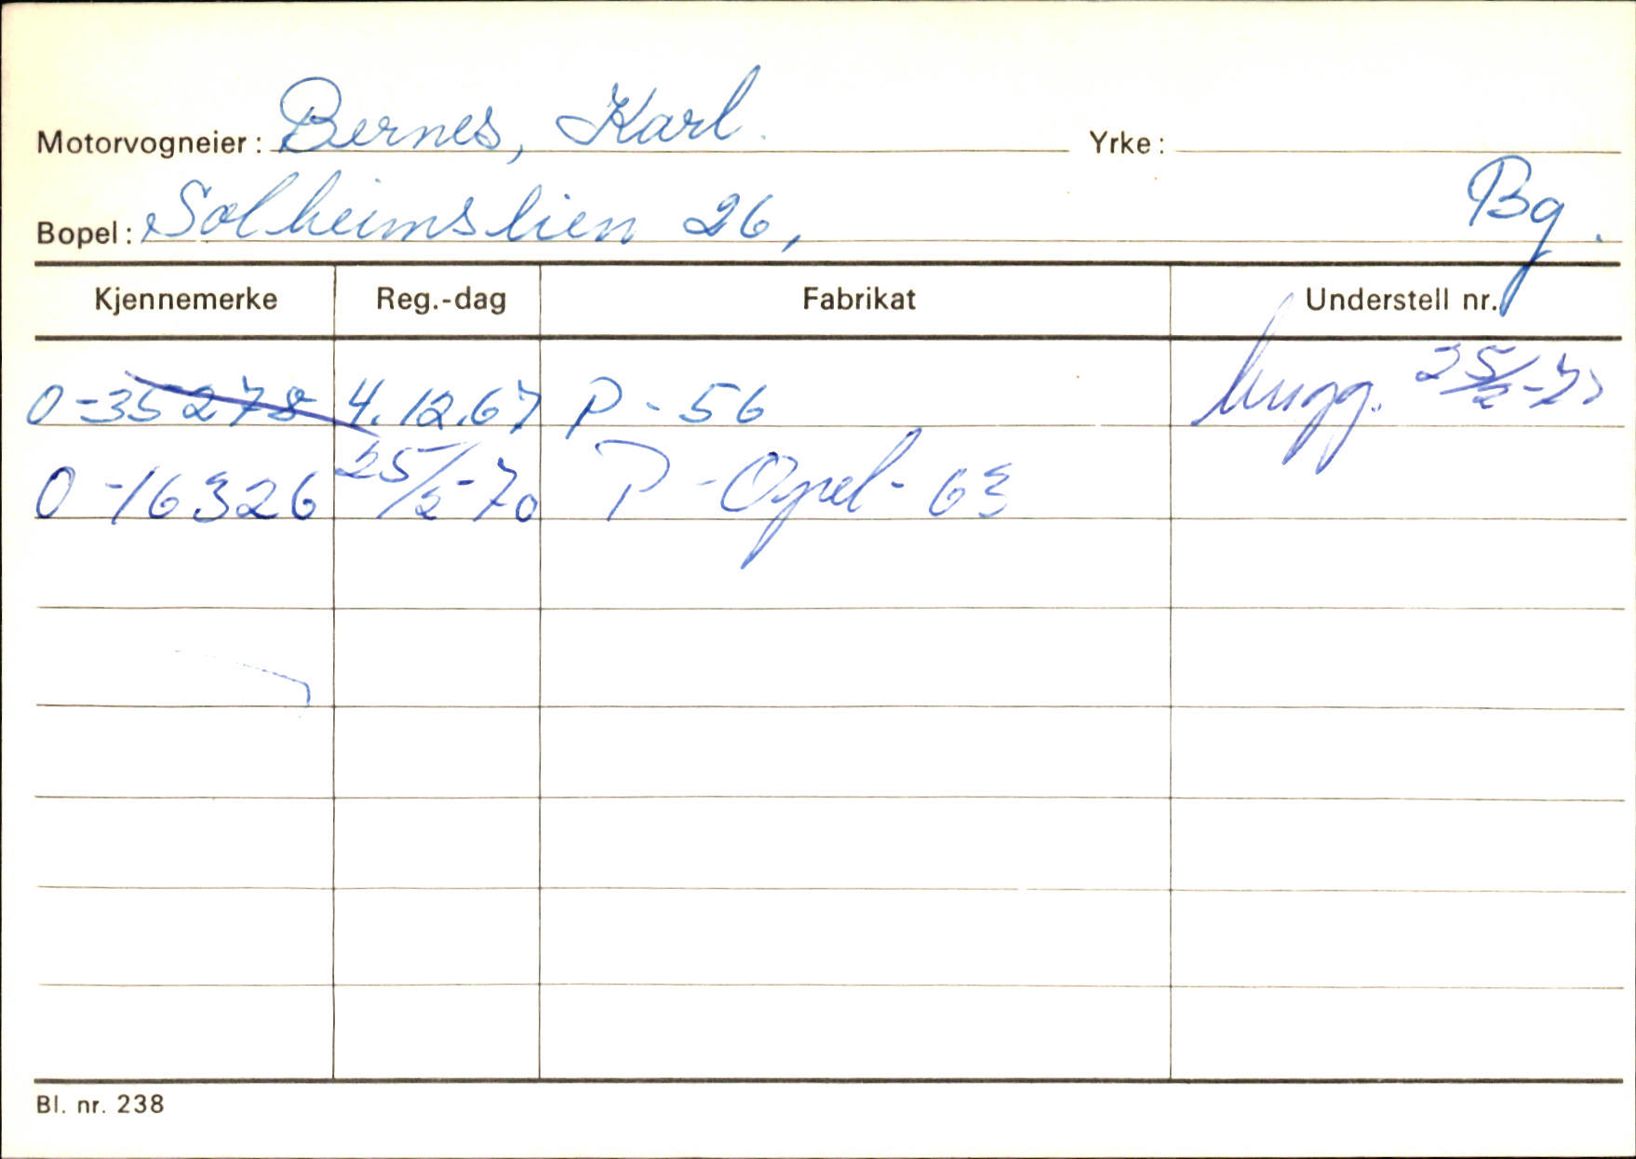 Motorvogneier: Bernes, Karl. Yrke:
Bopel: Solheimslien 26, Bg.
Kjennemerke Reg.-dag Fabrikat Understell nr.
O-35278 4.12.67 P-56 hugg. 25/2-70
O-16326 25/2-70 P-Opel-63
Bl. nr. 238